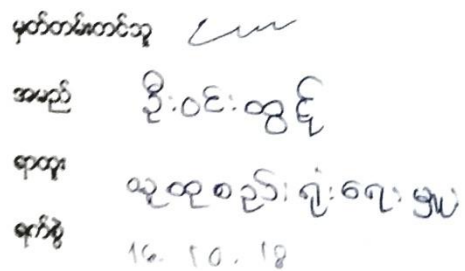 မှတ်တမ်းတင်သူ
အမည် ဦးဝင်းထွဋ်
ရာထူး လူထုစည်းရုံးရေးမှူး
ရက်စွဲ 16.10.18